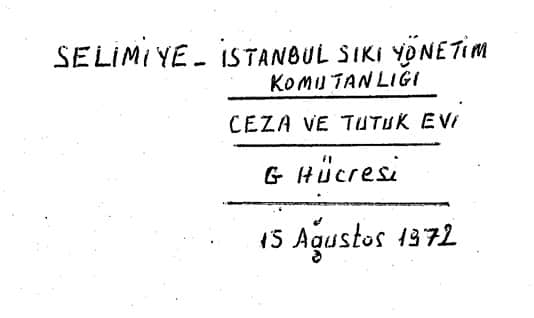 SELİMİYE - İSTANBUL SIKI YÖNETİM
KOMUTANLIĞI
CEZA VE TUTUK EVİ
G Hücresi
15 Ağustos 1972